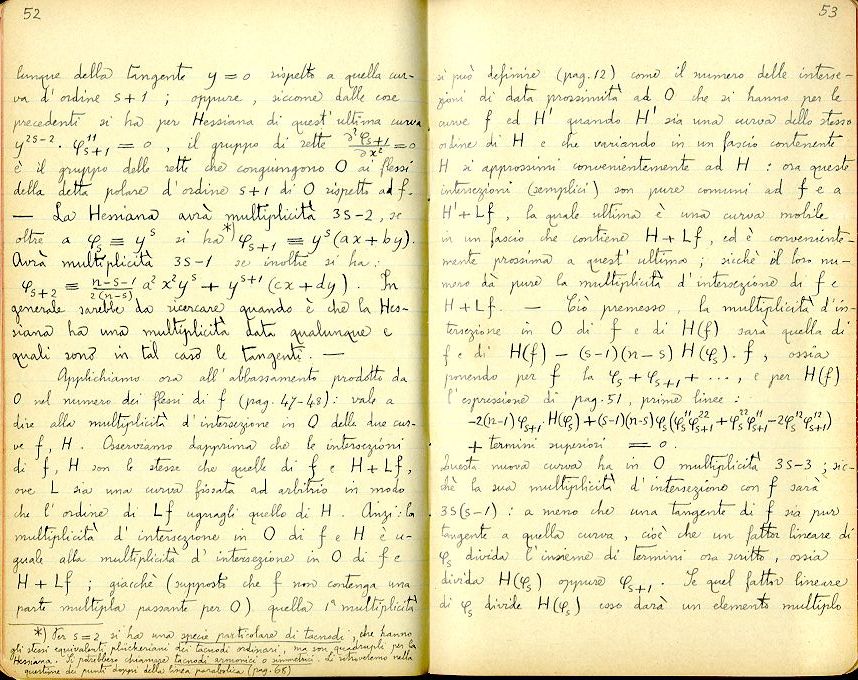 52
lunque della tangente y = 0 rispetto a quella cur-
va d'ordine s+1 ; oppure, siccome dalle cose
precedenti si ha per Hessiana di quest'ultima curva
y²ˢ⁻² · φ¹¹ₛ₊₁ = 0 , il gruppo di rette ∂²φₛ₊₁/∂x² = 0
è il gruppo delle rette che congiungono O ai flessi
della detta polare d'ordine s+1 di O rispetto ad f.
— La Hessiana avrà multiplicità 3s-2, se
oltre a φₛ ≡ yˢ si ha *) φₛ₊₁ ≡ yˢ(ax+by).
Avrà multiplicità 3s-1 se inoltre si ha:
φₛ₊₂ ≡ (n-s-1)/2(n-s) a² x² yˢ + yˢ⁺¹ (cx+dy). In
generale sarebbe da ricercare quando è che la Hes-
siana ha una multiplicità data qualunque e
quali sono in tal caso le tangenti. —
Applichiamo ora all'abbassamento prodotto da
O nel numero dei flessi di f (pag. 47-48): vale a
dire alla multiplicità d'intersezione in O delle due cur-
ve f, H. Osserviamo dapprima che le intersezioni
di f, H son le stesse che quelle di f e H+Lf,
ove L sia una curva fissata ad arbitrio in modo
che l'ordine di Lf uguagli quello di H. Anzi: la
multiplicità d'intersezione in O di f e H è u-
guale alla multiplicità d'intersezione in O di f e
H+Lf ; giacchè (supposto che f non contenga una
parte multipla passante per O) quella 1ª multiplicità
*) Per s=2 si ha una specie particolare di tacnodi, che hanno
gli stessi equivalenti plückeriani dei tacnodi ordinari, ma son quadrupli per la
Hessiana. Si potrebbero chiamare tacnodi armonici o simmetrici. Li ritroveremo nella
questione dei punti doppi della linea parabolica (pag. 68)
53
si può definire (pag. 12) come il numero delle interse-
zioni di data prossimità ad O che si hanno per le
curve f ed H' quando H' sia una curva dello stesso
ordine di H e che variando in un fascio contenente
H si approssimi convenientemente ad H : ora queste
intersezioni (semplici) son pure comuni ad f e a
H'+Lf, la quale ultima è una curva mobile
in un fascio che contiene H+Lf, ed è conveniente-
mente prossima a quest'ultima ; sicchè il loro nu-
mero dà pure la multiplicità d'intersezione di f e
H+Lf. — Ciò premesso, la multiplicità d'in-
tersezione in O di f e di H(f) sarà quella di
f e di H(f) - (s-1)(n-s) H(φₛ).f , ossia
ponendo per f la φₛ + φₛ₊₁ + ..., e per H(f)
l'espressione di pag. 51, prime linee :
-2(n-1)φₛ₊₁ H(φₛ) + (s-1)(n-s)φₛ(φₛ¹¹φₛ₊₁²² + φₛ²²φₛ₊₁¹¹ - 2φₛ¹²φₛ₊₁¹²)
+ termini superiori = 0.
Questa nuova curva ha in O multiplicità 3s-3 ; sic-
chè la sua multiplicità d'intersezione con f sarà
3s(s-1) : a meno che una tangente di f sia pur
tangente a quella curva, cioè che un fattor lineare di
φₛ divida l'insieme di termini ora scritto, ossia
divida H(φₛ) oppure φₛ₊₁. Se quel fattor lineare
di φₛ divide H(φₛ) esso darà un elemento multiplo